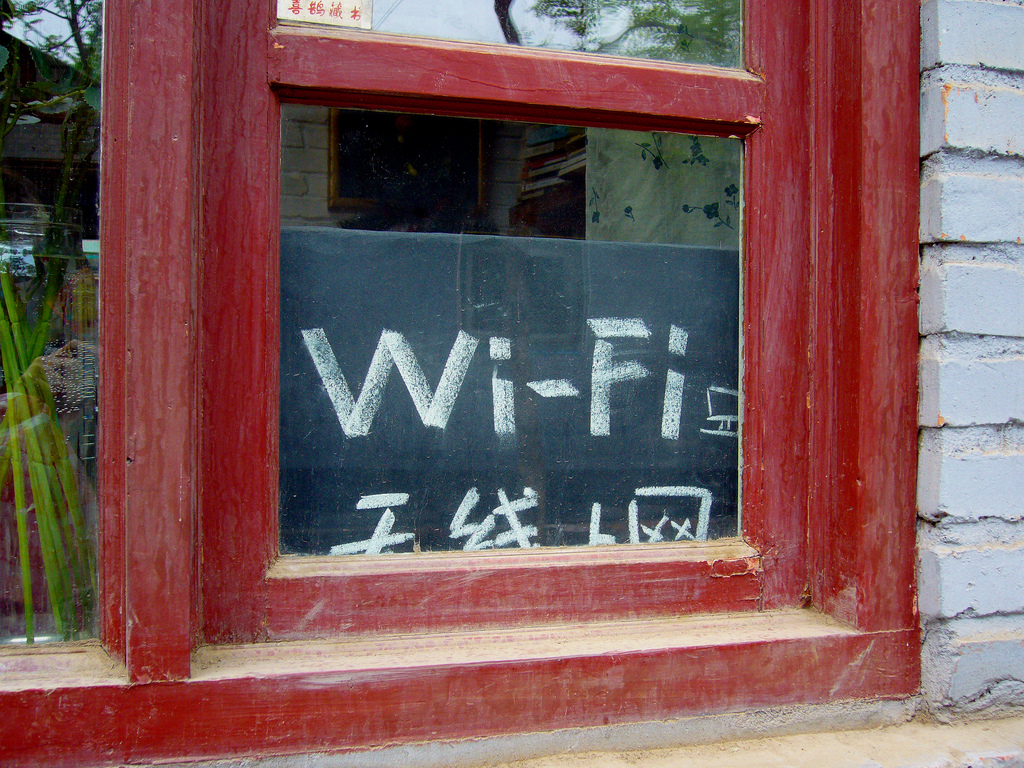 喜鹊藏书
Wi-Fi
无线上网